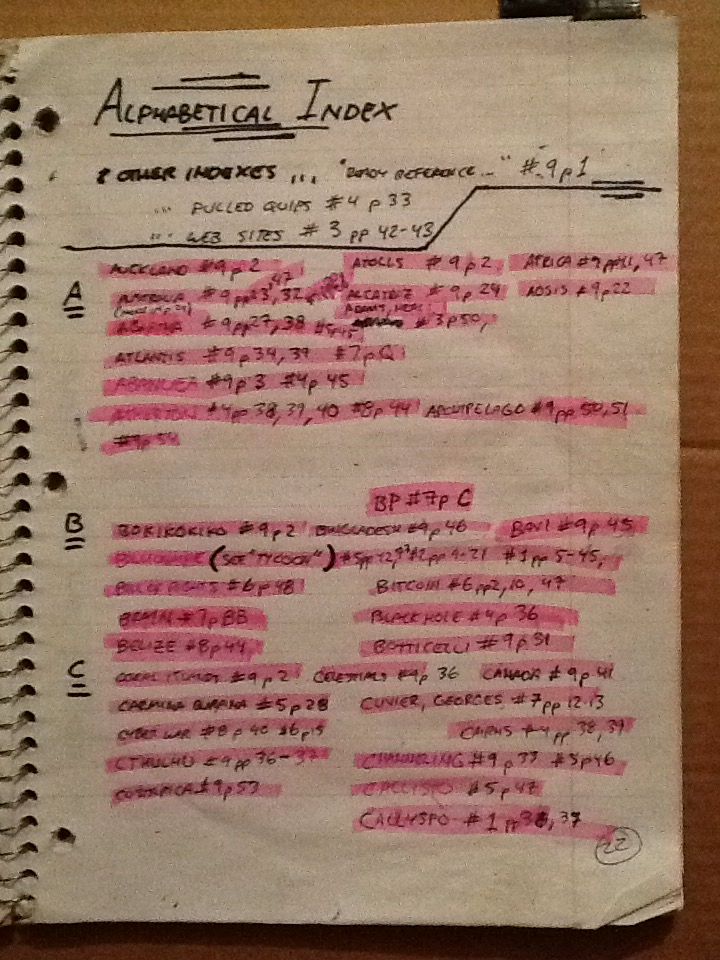 ALPHABETICAL INDEX
OTHER INDEXES ... "READY REFERENCE..." # 9 p 1
... PULLED QUIPS # 4 p 33
... WEB SITES # 3 pp 42-43
AUCKLAND # 9 p 2 ATOLLS # 9 p 2 AFRICA # 9 pp 47
A
AUSTRALIA # 9 pp 23, 32 ALCATRAZ # 9 p 24 AOSIS # 9 p 22
# 9 pp 27, 38 # 3 p 50,
ATLANTIS # 9 p 34, 39 # 7 p Q
# 9 p 3 # 4 p 45
# 4 pp 38, 39, 40 # 8 p 44 ARCHIPELAGO # 9 pp 50, 51
# 9 p 54
BP # 7 p C
B
BOKIKOKIKO # 9 p 2 BANGLADESH # 9 p 46 # 9 p 45
(SEE "TYCOON") # 1 pp 5-45,
# 6 p 48 BITCOIN # 6 pp 2, 10, 47
BRAIN # 7 p BB BLACK HOLE # 4 p 36
BELIZE # 8 p 44 BOTTICELLI # 9 p 31
C
# 9 p 2 CELESTIALS # 4 p 36 CANADA # 9 p 41
CARMINA BURANA # 5 p 28 CUVIER, GEORGES, # 7 pp 12-13
CYBER WAR # 8 p 40 # 6 p 15 # 4 pp 38, 39
CTHULHU # 9 pp 36-37 CHANNELING # 9 p 33 # 5 p 46
COSTA RICA # 9 p 53 CALLYSPO # 5 p 47
CALLYSPO # 1 pp 38, 37
22